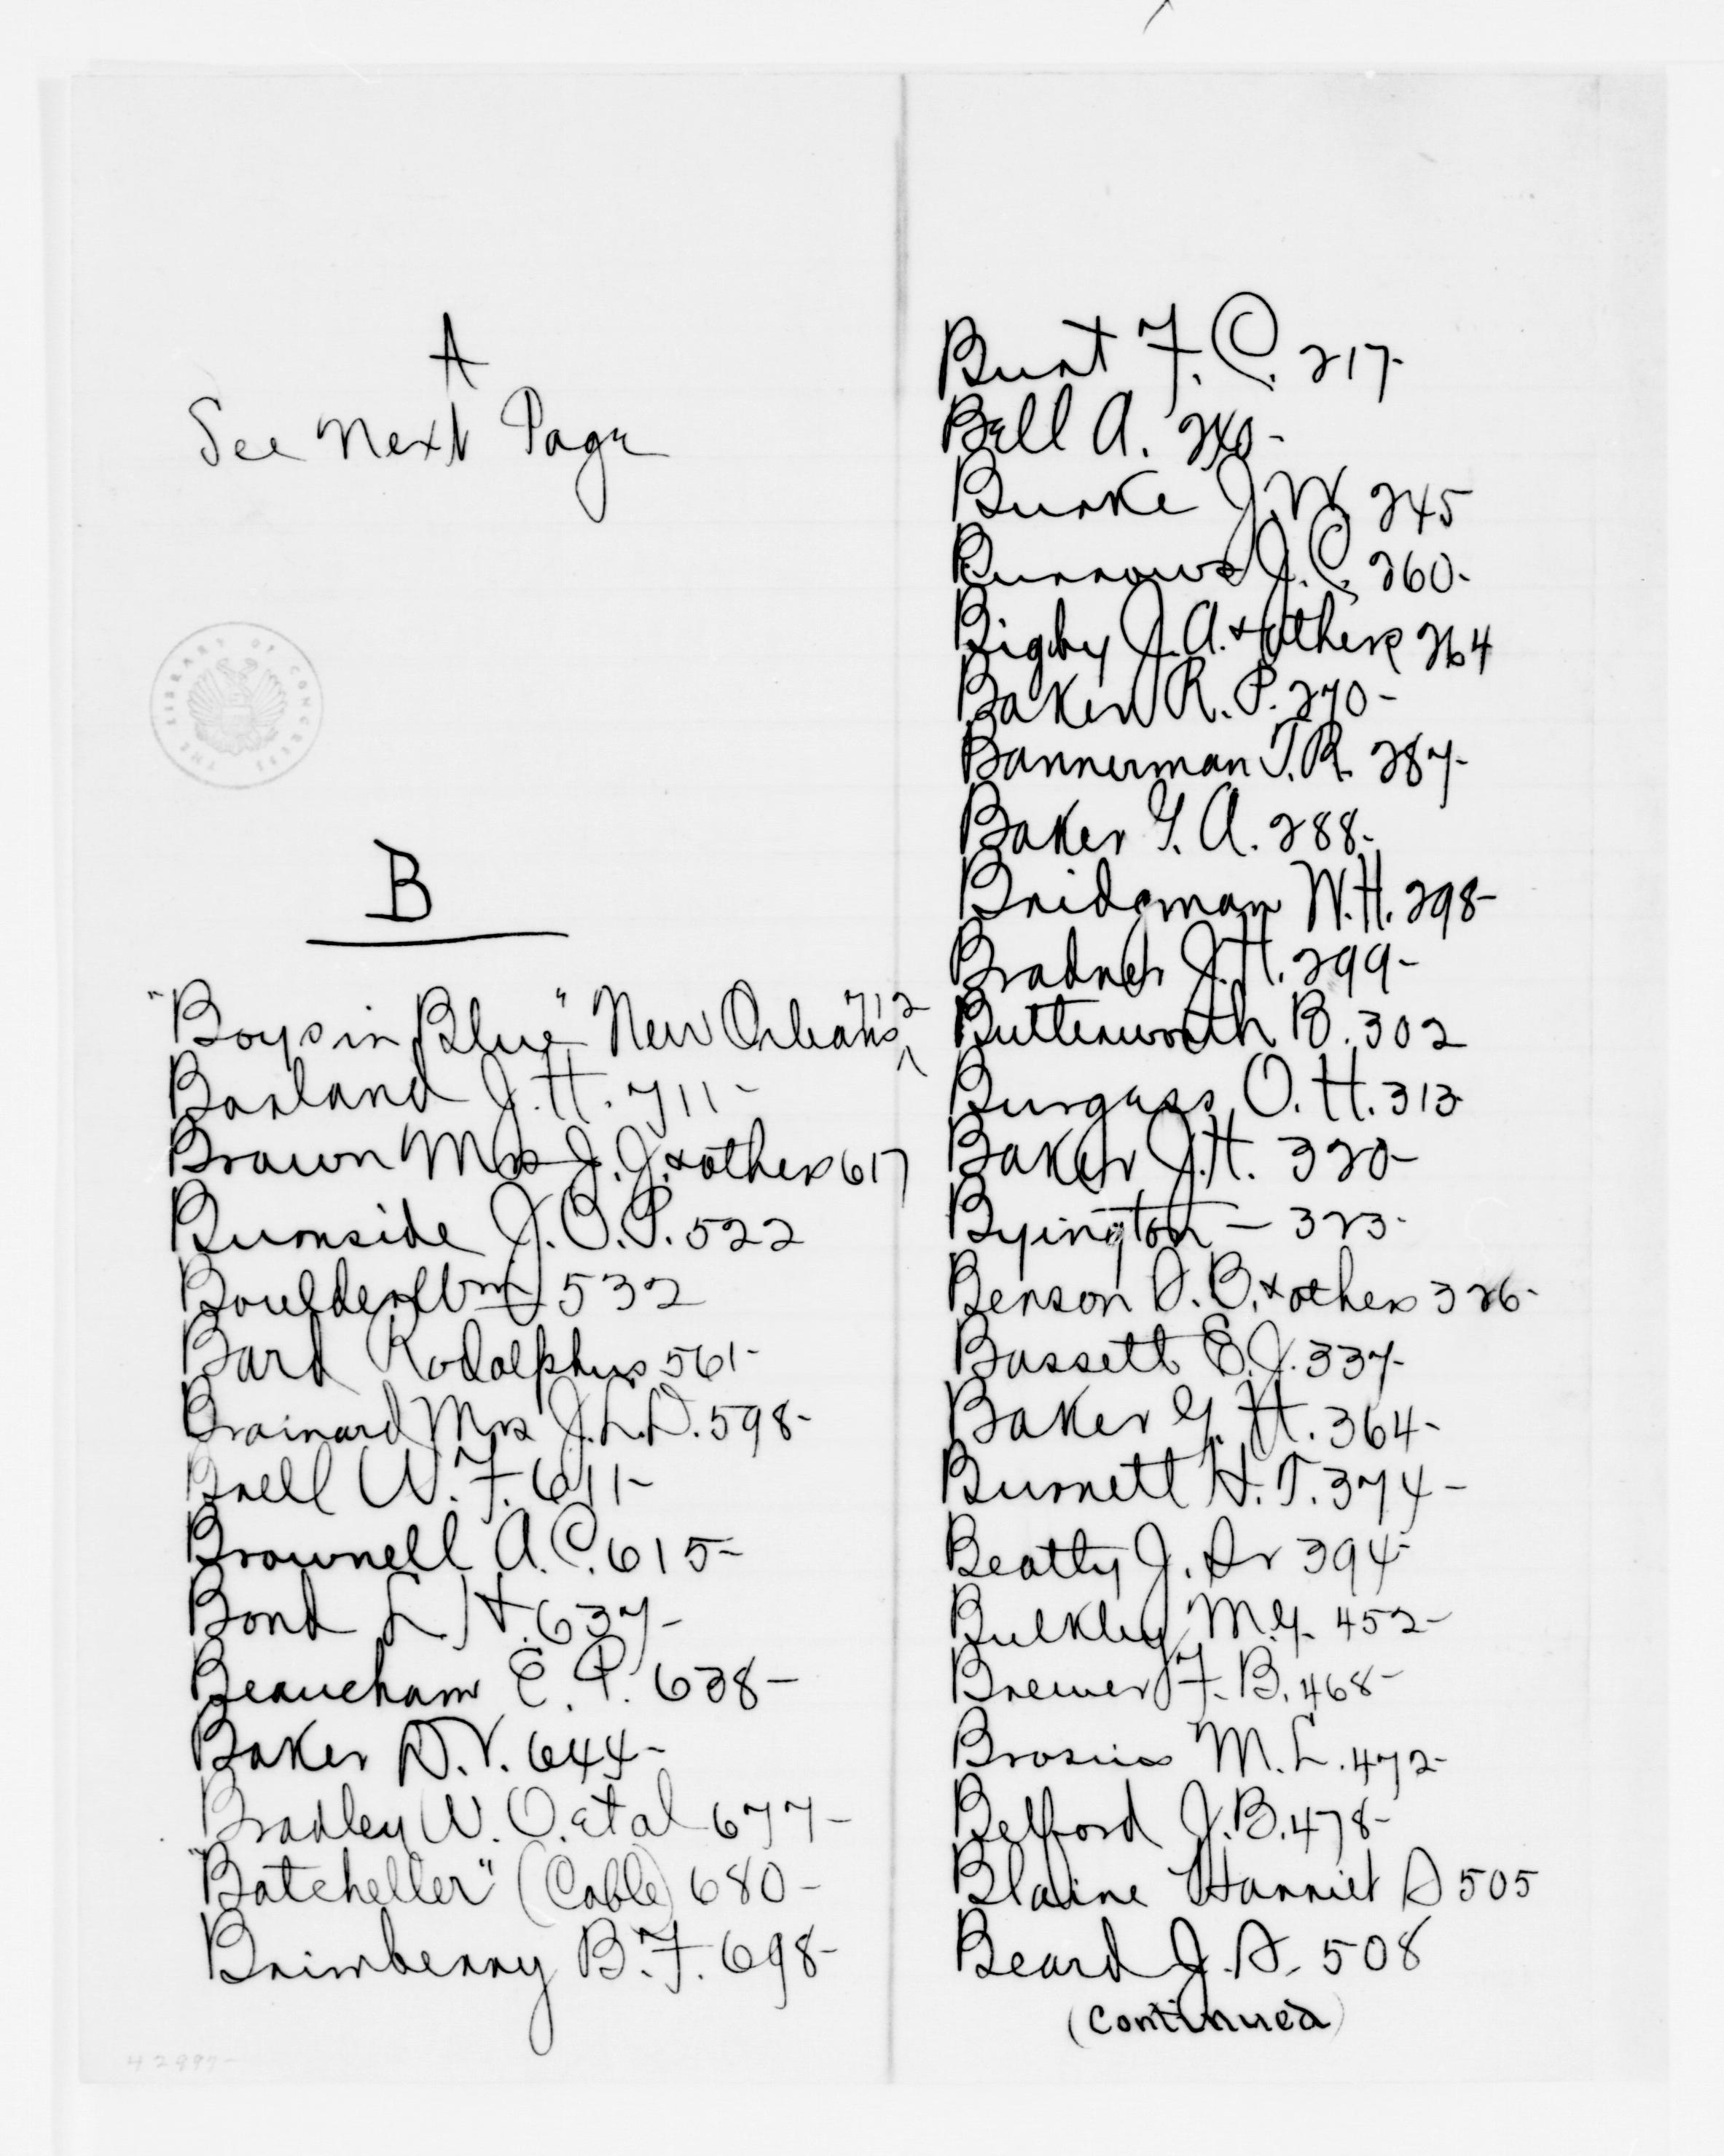 A
See Next Page
THE LIBRARY OF CONGRESS
B
"Boys in Blue" New Orleans 712
Barland J. H. 711-
Brown Mrs J. J. & others 617
Burnside J. O. P. 522
Boulder 532
Bard Rodolphus 561-
Brainard Mrs J. L. D. 598-
Brell W. F. 611-
Brownell A. C. 615-
Bond L. H. 637-
Beaucham E. P. 638-
Baker D. V. 644-
Bradley W. O. et al 677-
"Batcheller" (Cable) 680-
Brimberry B. F. 698-
Burt F. C. 217-
Bell A. 240-
Burke J. W. 245
Burrows J. C. 260-
Bigby J. A. & others 264
Baker R. P. 270-
Bannerman T. R. 287-
Baker G. A. 288-
Bridgman W. H. 298-
Bradner J. H. 299-
Butterworth B. 302
Burgess O. H. 313
Baker J. H. 320-
Byington - 323-
Benson D. B. & others 326-
Bassett E. J. 337-
Baker G. H. 364-
Burnett H. T. 374-
Beatty J. Dr 394-
Bulkley M. G. 452-
Brewer F. B. 468-
Brosius M. L. 472-
Belford J. B. 478-
Blaine Harriet S 505
Beard J. S. 508
(continued)